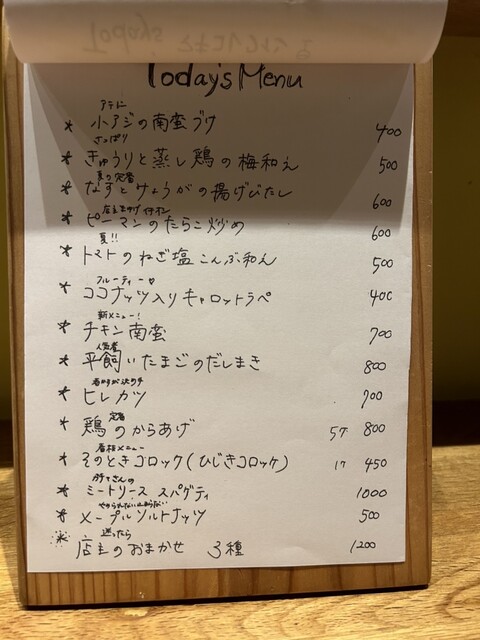 Today's Menu
アテに
* 小アジの南蛮づけ 400
さっぱり
* きゅうりと蒸し鶏の梅和え 500
夏の定番
* なすとみょうがの揚げびたし 600
* ピーマンのたらこ炒め 600
夏!!
* トマトのねぎ塩こんぶ和え 500
フルーティー♡
* ココナッツ入りキャロットラペ 400
新メニュー!
* チキン南蛮 700
人気者
* 平飼いたまごのだしまき 800
* ヒレカツ 700
定番
* 鶏のからあげ 5ケ 800
看板メニュー
* そのときコロッケ(ひじきコロッケ) 1ケ 450
* ミートソース スパゲティ 1000
やめられない止まらない
* メープルソルトナッツ 500
迷ったら
* 店主のおまかせ 3種 1200